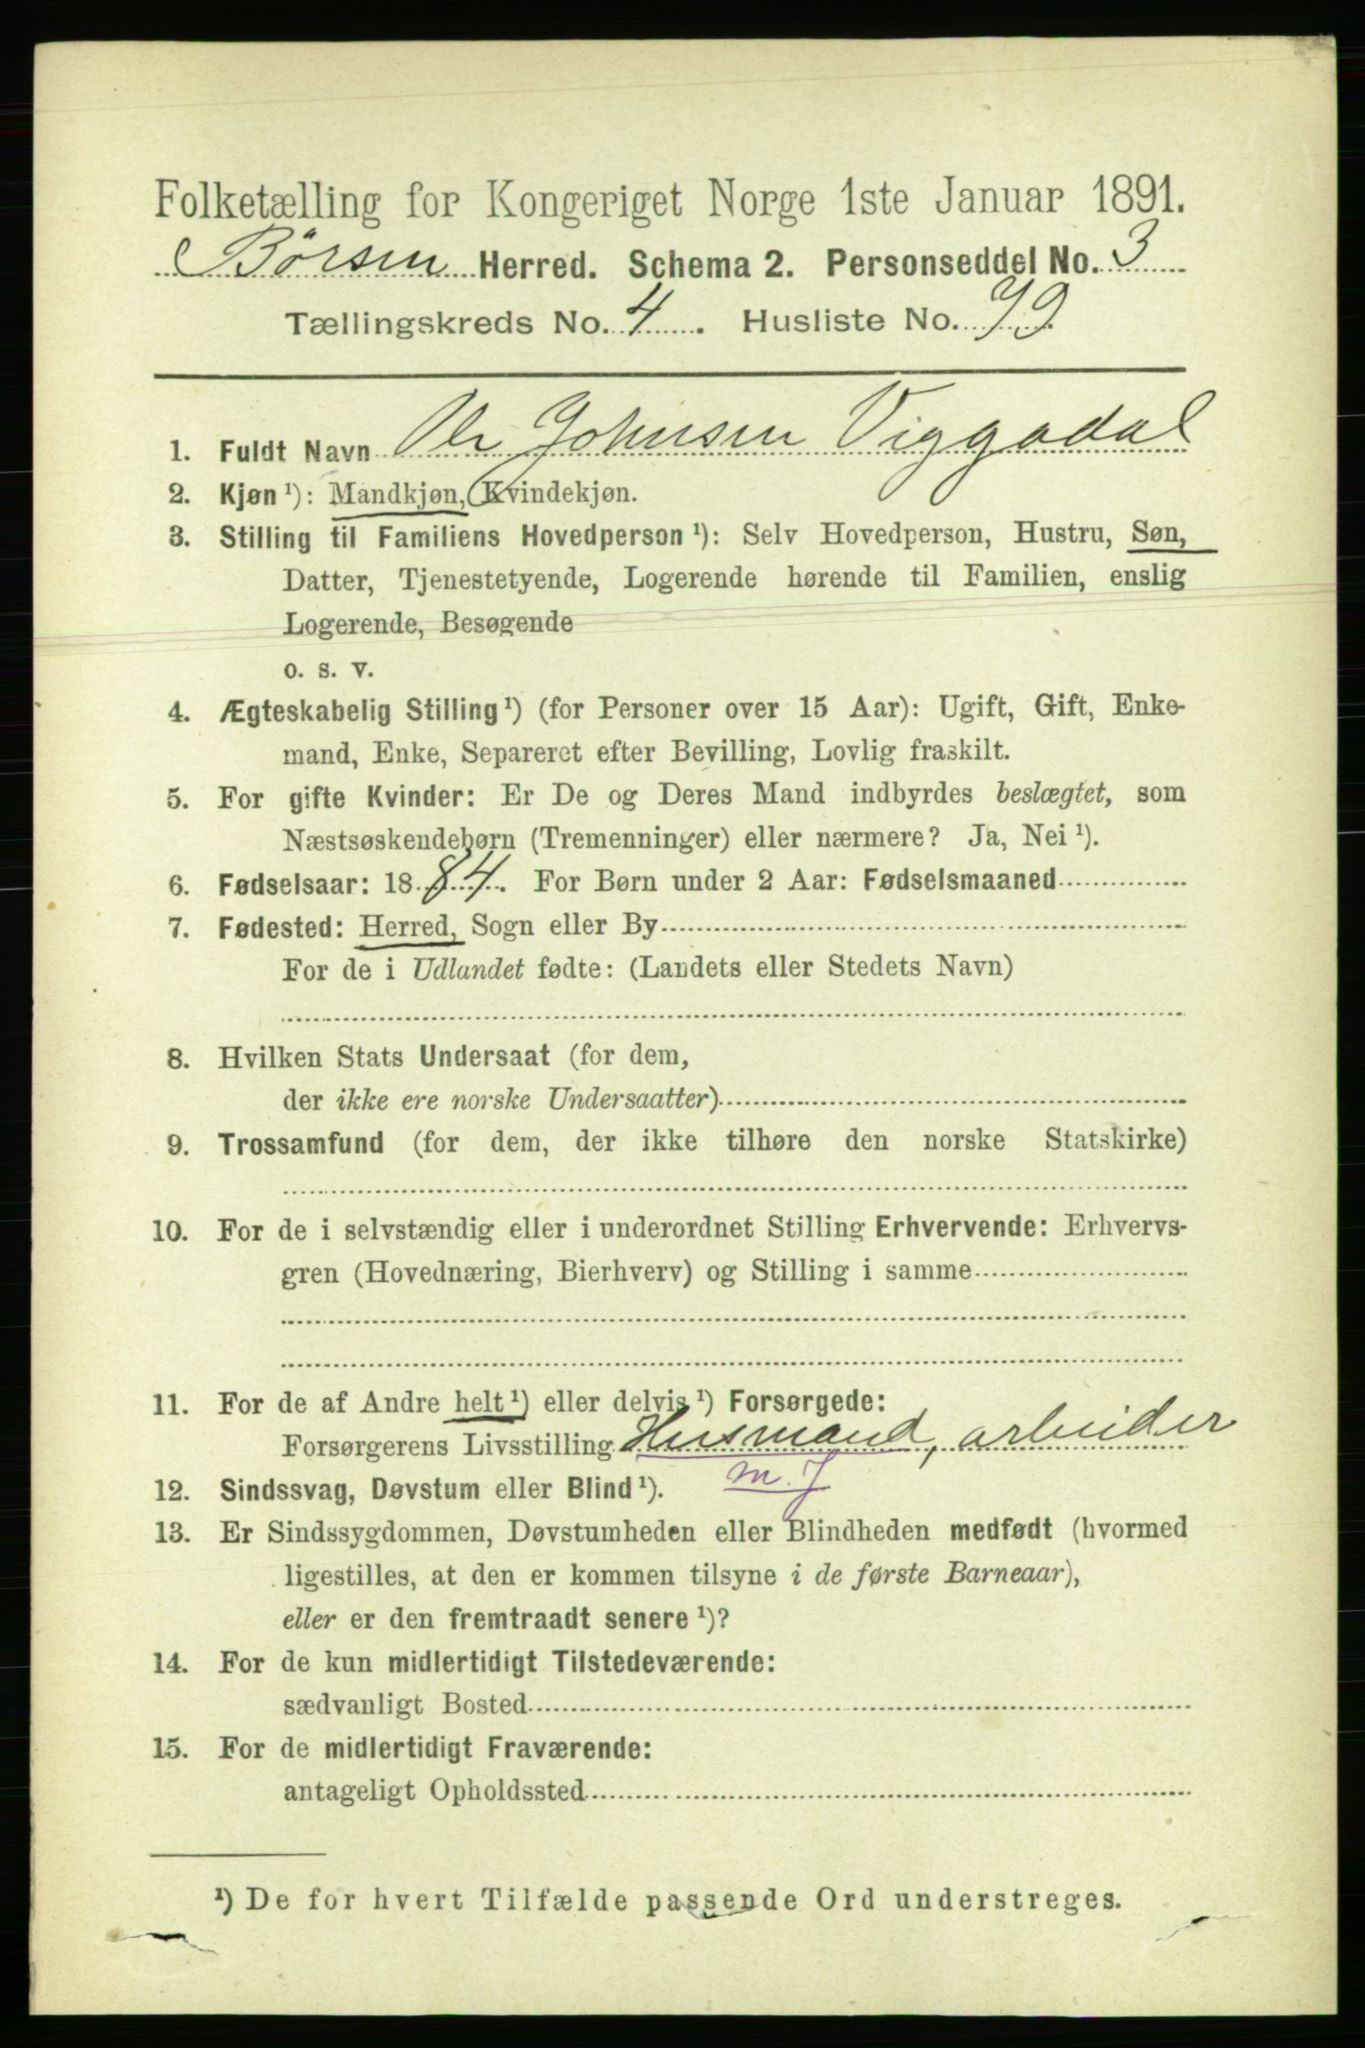 Folketælling for Kongeriget Norge 1ste Januar 1891.
Børsen Herred. Schema 2. Personseddel No. 3
Tællingskreds No. 4. Husliste No. 79.
1. Fuldt Navn Ole Johnsen Viggadal
2. Kjøn ¹): Mandkjøn, Kvindekjøn.
3. Stilling til Familiens Hovedperson ¹): Selv Hovedperson, Hustru, Søn,
Datter, Tjenestetyende, Logerende hørende til Familien, enslig
Logerende, Besøgende
o. s. v.
4. Ægteskabelig Stilling ¹) (for Personer over 15 Aar): Ugift, Gift, Enke-
mand, Enke, Separeret efter Bevilling, Lovlig fraskilt.
5. For gifte Kvinder: Er De og Deres Mand indbyrdes beslægtet, som
Næstsøskendebørn (Tremenninger) eller nærmere? Ja, Nei ¹).
6. Fødselsaar: 1884. For Børn under 2 Aar: Fødselsmaaned
7. Fødested: Herred, Sogn eller By
For de i Udlandet fødte: (Landets eller Stedets Navn)
8. Hvilken Stats Undersaat (for dem,
der ikke ere norske Undersaatter)
9. Trossamfund (for dem, der ikke tilhøre den norske Statskirke)
10. For de i selvstændig eller i underordnet Stilling Erhvervende: Erhvervs-
gren (Hovednæring, Bierhverv) og Stilling i samme
11. For de af Andre helt ¹) eller delvis ¹) Forsørgede:
Forsørgerens Livsstilling Husmand, arbeider
m. J
12. Sindssvag, Døvstum eller Blind ¹).
13. Er Sindssygdommen, Døvstumheden eller Blindheden medfødt (hvormed
ligestilles, at den er kommen tilsyne i de første Barneaar),
eller er den fremtraadt senere ¹)?
14. For de kun midlertidigt Tilstedeværende:
sædvanligt Bosted
15. For de midlertidigt Fraværende:
antageligt Opholdssted
¹) De for hvert Tilfælde passende Ord understreges.